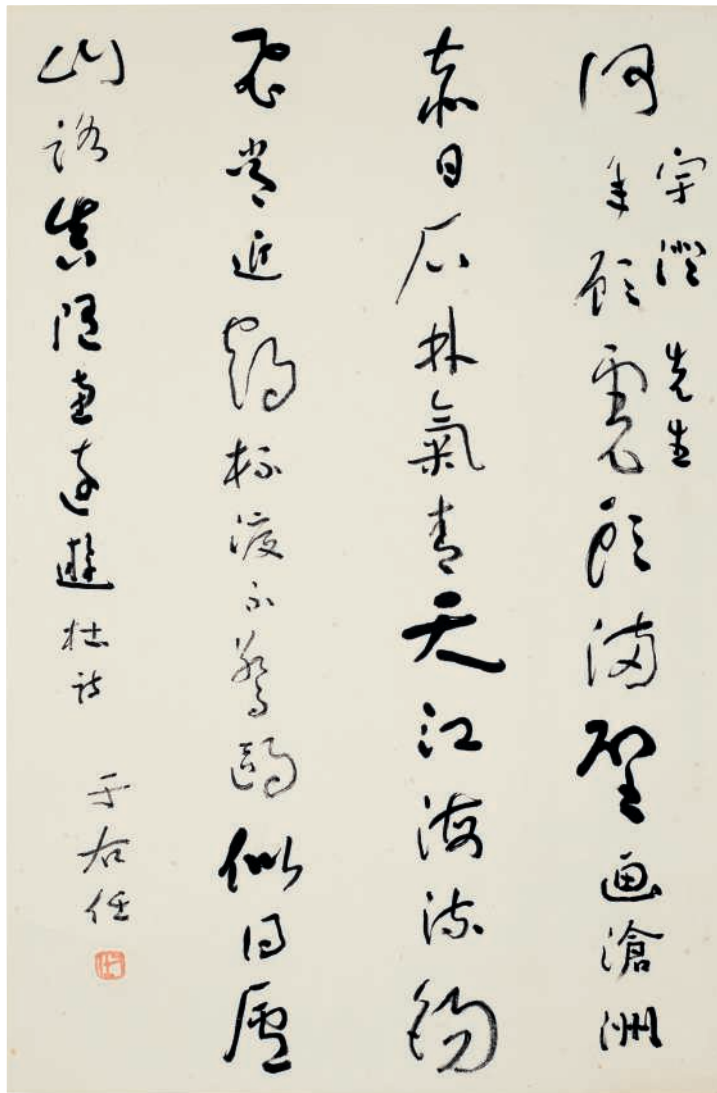 宇澄先生
何年顧虎頭滿壁画滄洲
赤日石林氣青天江海流錫
飛常近鶴杯渡不驚鷗似得廬
山路真隨惠遠遊杜詩
于右任